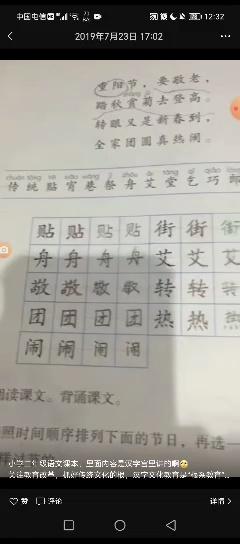 中国电信
12:32
2019年7月23日 17:02
重阳节,要敬老,
踏秋赏菊去登高。
转眼又是新春到,
全家团圆真热闹。
chuán tǒng tiē xiāo xiàng jì zhōu ài táng qǐ qiǎo
传 统 贴 宵 巷 祭 舟 艾 堂 乞 巧 郎
贴 贴 贴 贴 街 街 街
舟 舟 舟 舟 艾 艾 艾
敬 敬 敬 敬 转 转 转
团 团 团 团 热 热 热
闹 闹 闹 闹
朗读课文。背诵课文。
照时间顺序排列下面的节日,再选一
小学二年级语文课本,里面内容是汉字宫里讲的啊
关注教育改革,抓好传统文化的根,汉字文化教育是"根系教育"…
赞 评论 详情